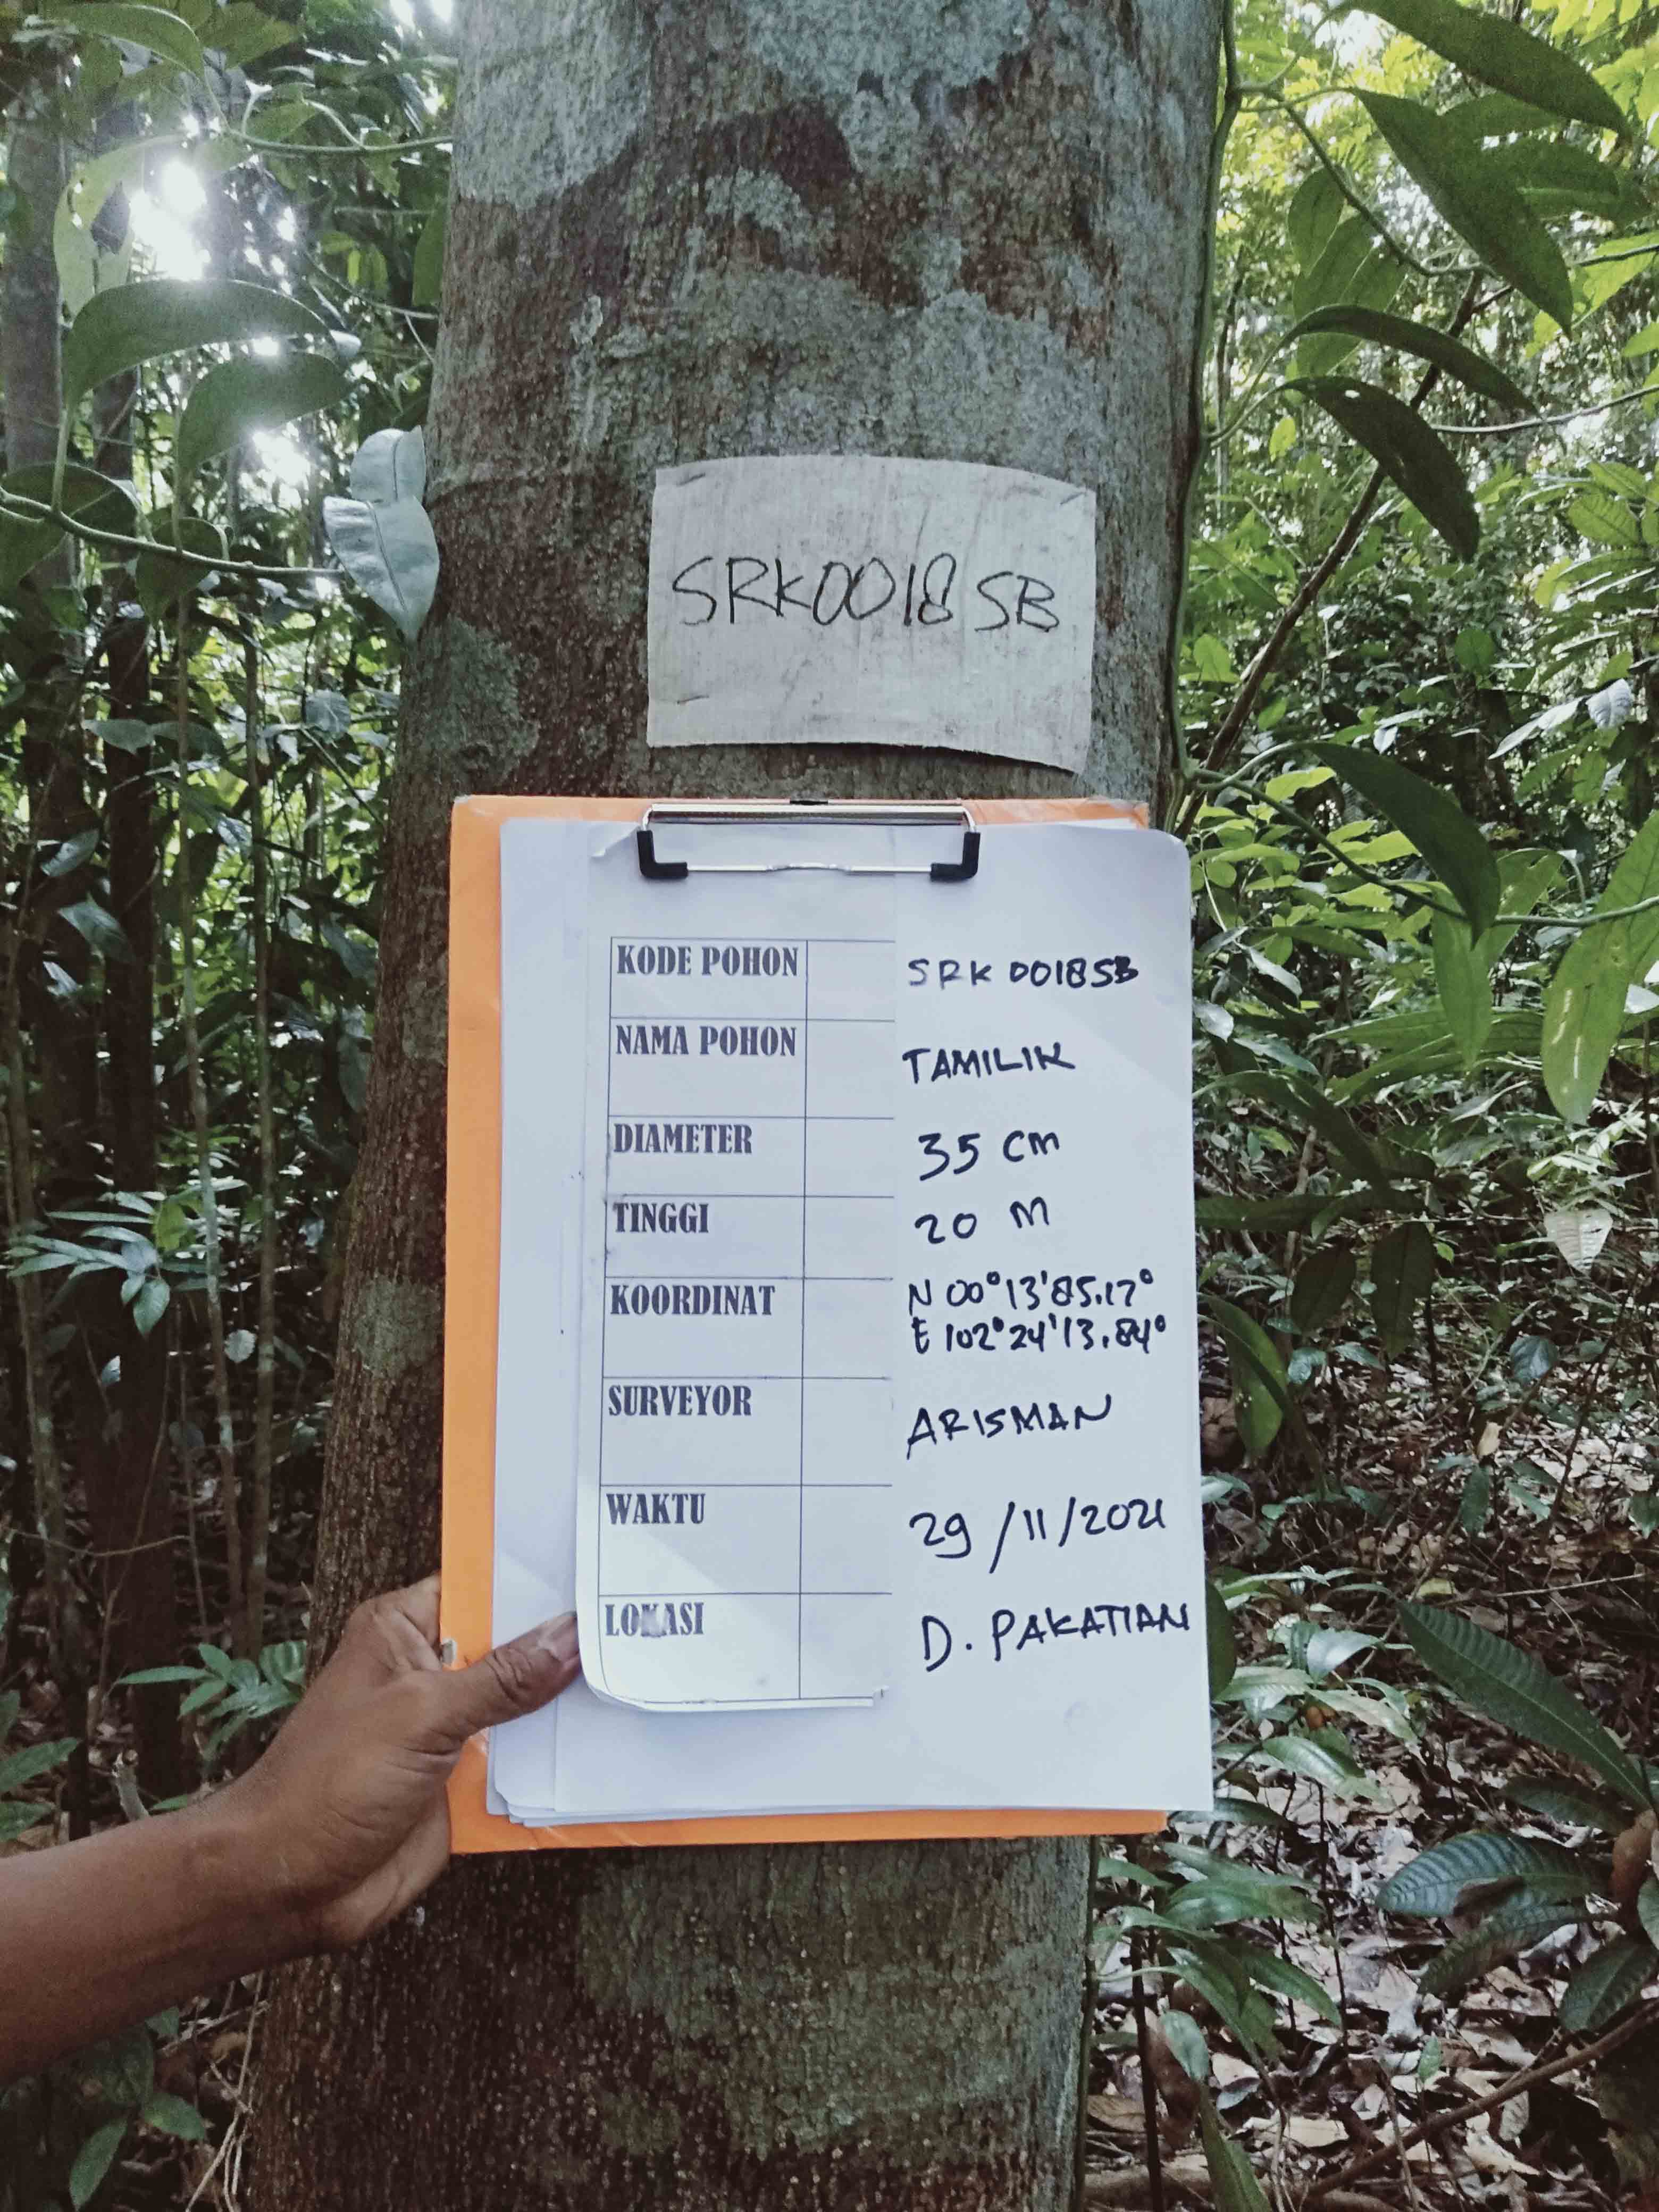 SRK0018 SB
KODE POHON SRK 0018SB
NAMA POHON TAMILIK
DIAMETER 35 cm
TINGGI 20 M
KOORDINAT N 00°13'85.17°
E 102°24'13.84°
SURVEYOR ARISMAN
WAKTU 29/11/2021
LOKASI D. PAKATIAN